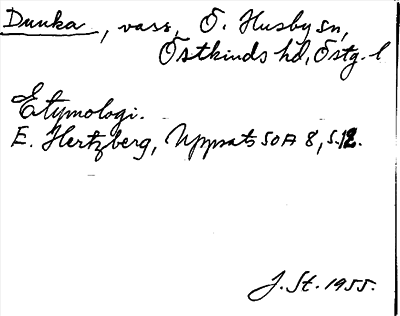 Dunka, vass, Ö. Husby sn,
Östkinds hd, Östg. l
Etymologi.
E. Hertzberg, Uppsats SOA 8, s. 12.
J. St. 1955.